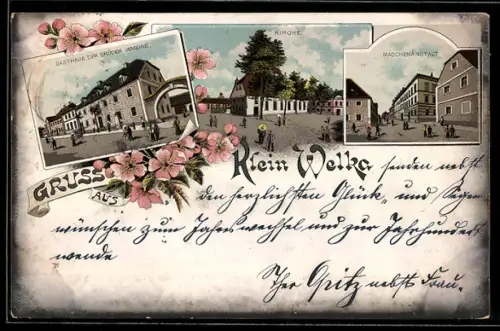 GASTHAUS DER BRÜDER GEMEINE.
KIRCHE
MÄDCHENANSTALT
GRUSS
AUS
Klein Welka senden nebst
den herzlichsten Glück- und Segen
wünschen zum Jahreswechsel und zur Jahrhundert
wende
Ihr Opitz nebst Frau.